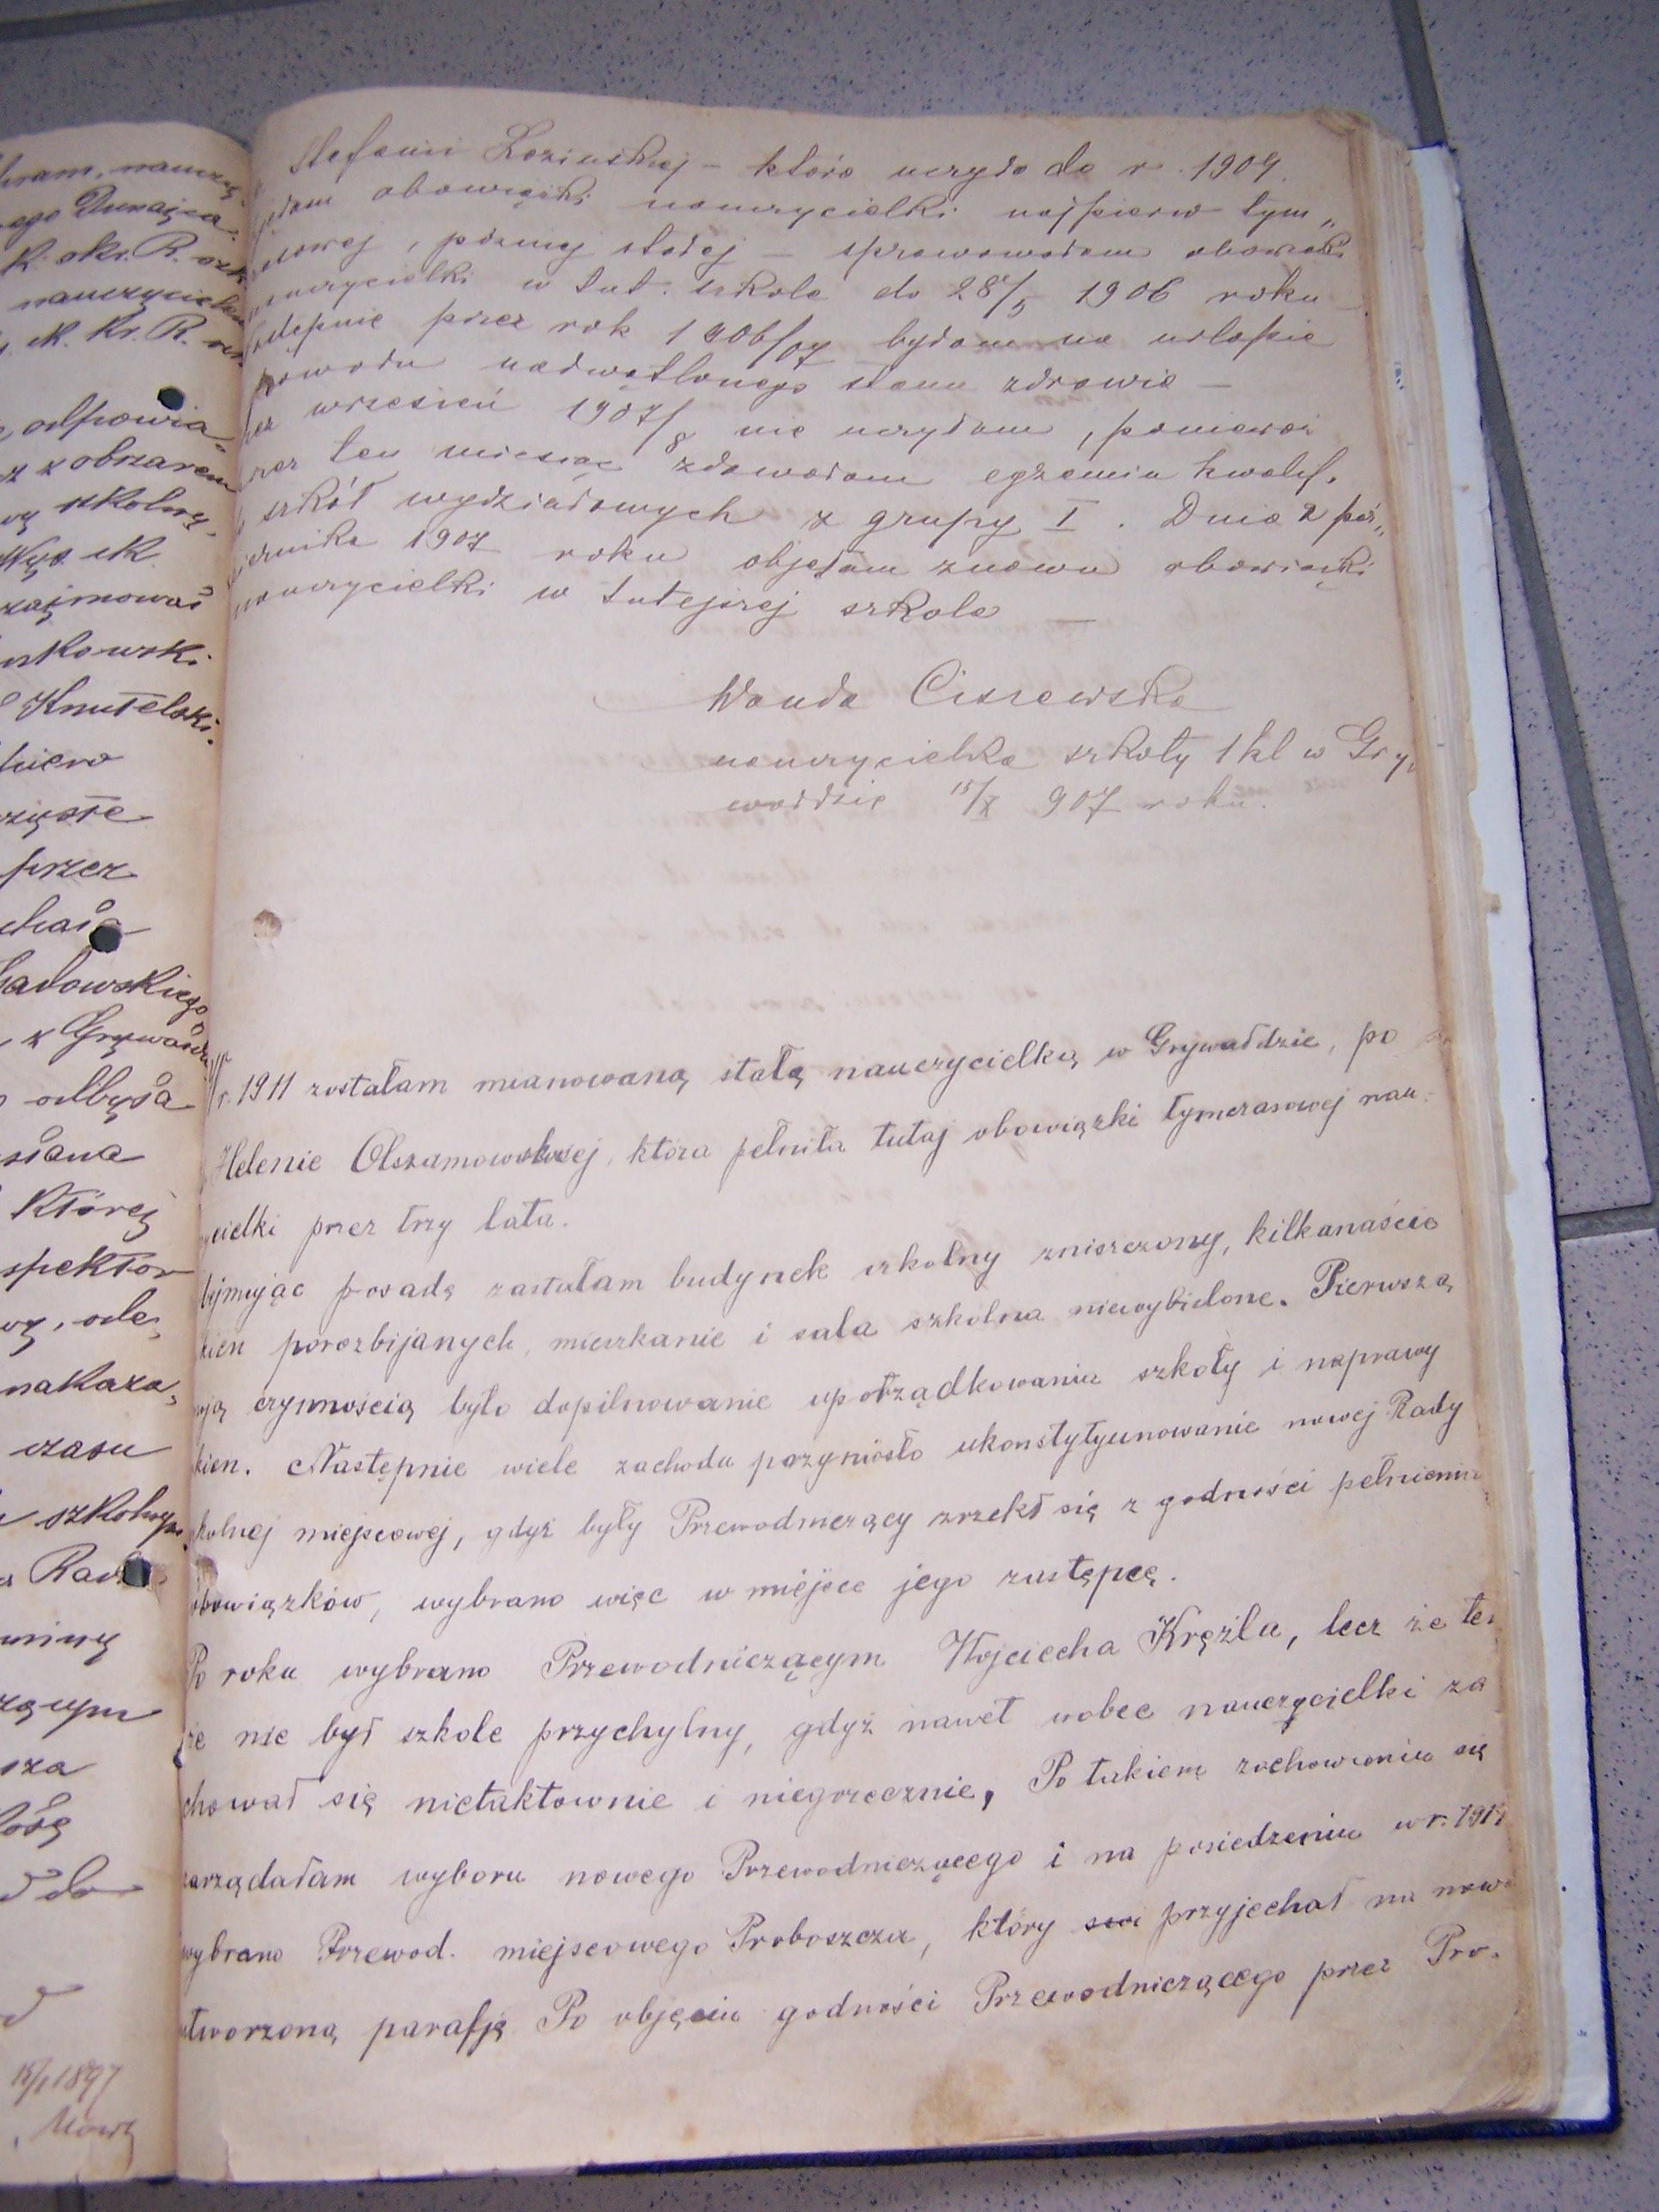 bram, nauczy
ego Dunajca
k. okr. R. szk
nauczyciela
k. Kr. R.
odpowia-
z obszarem
szkolną,
Wys. k.
zajmować
nkowski
Knutelski.
czyste
przez
adowskiego
z Grywałdu
odbyła
siana
której
spektor
ode,
nakaza,
czasu
szkolnym
Rad
miny
szą
do
15/1 1897
Nowy
Stefanii Łozińskiej – która uczyła do r. 1904.
jęłam obowiązki nauczycielki najpierw tym„
asowej, później stałej – sprawowałam obowiązki
nauczycielki w tut. szkole do 28/5 1906 roku
astępnie przez rok 1906/07 byłam na urlopie
powodu nadwątlonego stanu zdrowia –
zez wrzesień 1907/8 nie uczyłam, ponieważ
rzez ten miesiąc zdawałam egzamin kwalif.
szkół wydziałowych z grupy I. Dnia 2 paź„
ziernika 1907 roku objęłam znowu obowiązki
nauczycielki w tutejszej szkole –
Wanda Ciszewska
nauczycielka szkoły 1 kl w Gry„
wałdzie 15/X 907 roku.
r. 1911 zostałam mianowaną stałą nauczycielką w Grywałdzie, po
Helenie Olszamowskiej, która pełniła tutaj obowiązki tymczasowej nau-
ycielki przez trzy lata.
bejmując posadę zastałam budynek szkolny zniszczony, kilkanaście
kien porozbijanych, mieszkanie i sala szkolna niewybielone. Pierwszą
moją czynnością było dopilnowanie uporządkowania szkoły i naprawy
kien. Następnie wiele zachodu przyniosło ukonstytyunowanie nowej Rady
zkolnej miejscowej, gdyż były Przewodniczący zrzekł się z godności pełnienia
obowiązków, wybrano więc w miejsce jego zastępcę.
Po roku wybrano Przewodniczącym Wojciecha Krężla, lecz że ten
że nie był szkole przychylny, gdyż nawet wobec nauczycielki za
chował się nietaktownie i niegrzecznie, Po takiem zachowaniu się
zarządałam wyboru nowego Przewodniczącego i na posiedzeniu w r. 191
wybrano Przewod. miejscowego Proboszcza, który przyjechał na nowo
utworzoną parafję Po objęciu godności Przewodniczącego przez Pro-